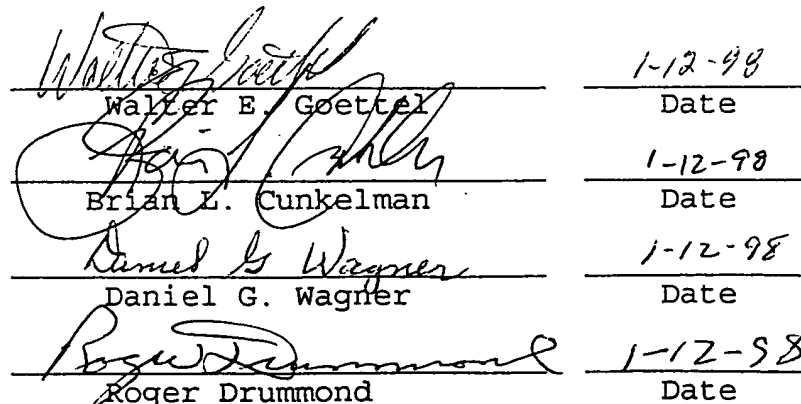 Walter Goettel 1-12-98
Walter E. Goettel Date
1-12-98
Brian L. Cunkelman Date
Daniel G Wagner 1-12-98
Daniel G. Wagner Date
Roger Drummond 1-12-98
Roger Drummond Date